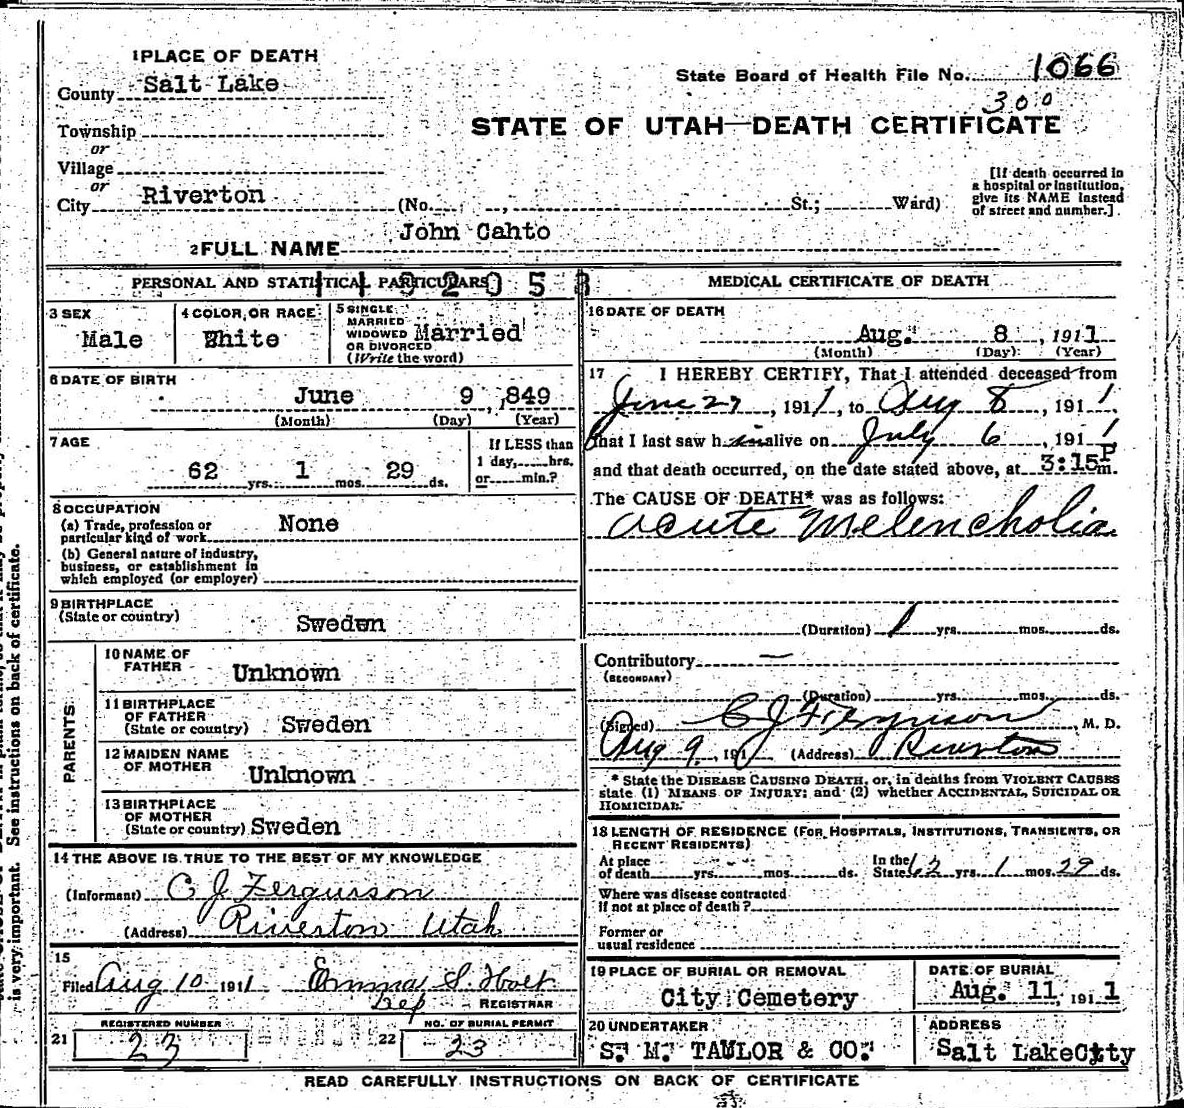 1 PLACE OF DEATH
County Salt Lake
State Board of Health File No. 1066
300
Township
or
STATE OF UTAH—DEATH CERTIFICATE
Village
or
City Riverton (No. , St.; Ward)
[If death occurred in
a hospital or institution,
give its NAME instead
of street and number.]
2 FULL NAME John Cahto
PERSONAL AND STATISTICAL PARTICULARS
3 SEX
Male
4 COLOR OR RACE
White
5 SINGLE
MARRIED
WIDOWED
OR DIVORCED
(Write the word)
Married
6 DATE OF BIRTH
June 9, 1849
(Month) (Day) (Year)
7 AGE
62 yrs. 1 mos. 29 ds.
If LESS than
1 day, hrs.
or min.?
8 OCCUPATION
(a) Trade, profession or
particular kind of work None
(b) General nature of industry,
business, or establishment in
which employed (or employer)
9 BIRTHPLACE
(State or country) Sweden
PARENTS
10 NAME OF
FATHER Unknown
11 BIRTHPLACE
OF FATHER
(State or country) Sweden
12 MAIDEN NAME
OF MOTHER Unknown
13 BIRTHPLACE
OF MOTHER
(State or country) Sweden
14 THE ABOVE IS TRUE TO THE BEST OF MY KNOWLEDGE
(Informant) C J Fergurson
(Address) Riverton Utah
15
Filed Aug 10 1911 Emma S. Holt
Dep REGISTRAR
REGISTERED NUMBER
21 23
NO. OF BURIAL PERMIT
22 23
MEDICAL CERTIFICATE OF DEATH
16 DATE OF DEATH
Aug. 8, 1911
(Month) (Day) (Year)
17 I HEREBY CERTIFY, That I attended deceased from
June 27, 1911, to Aug 8, 1911
that I last saw him alive on July 6, 1911
and that death occurred, on the date stated above, at 3:15 P m.
The CAUSE OF DEATH* was as follows:
acute Melencholia
(Duration) 1 yrs. mos. ds.
Contributory —
(SECONDARY)
(Duration) yrs. mos. ds.
(Signed) C J Ferguson, M. D.
Aug 9, 191 (Address) Riverton
* State the DISEASE CAUSING DEATH, or, in deaths from VIOLENT CAUSES
state (1) MEANS OF INJURY; and (2) whether ACCIDENTAL, SUICIDAL OR
HOMICIDAL.
18 LENGTH OF RESIDENCE (FOR HOSPITALS, INSTITUTIONS, TRANSIENTS, OR
RECENT RESIDENTS)
At place
of death yrs. mos. ds.
In the
State 62 yrs. 1 mos. 29 ds.
Where was disease contracted
if not at place of death?
Former or
usual residence
19 PLACE OF BURIAL OR REMOVAL
City Cemetery
DATE OF BURIAL
Aug. 11, 1911
20 UNDERTAKER
S. M. TAULOR & CO.
ADDRESS
Salt LakeCity
READ CAREFULLY INSTRUCTIONS ON BACK OF CERTIFICATE
is very important. See instructions on back of certificate.